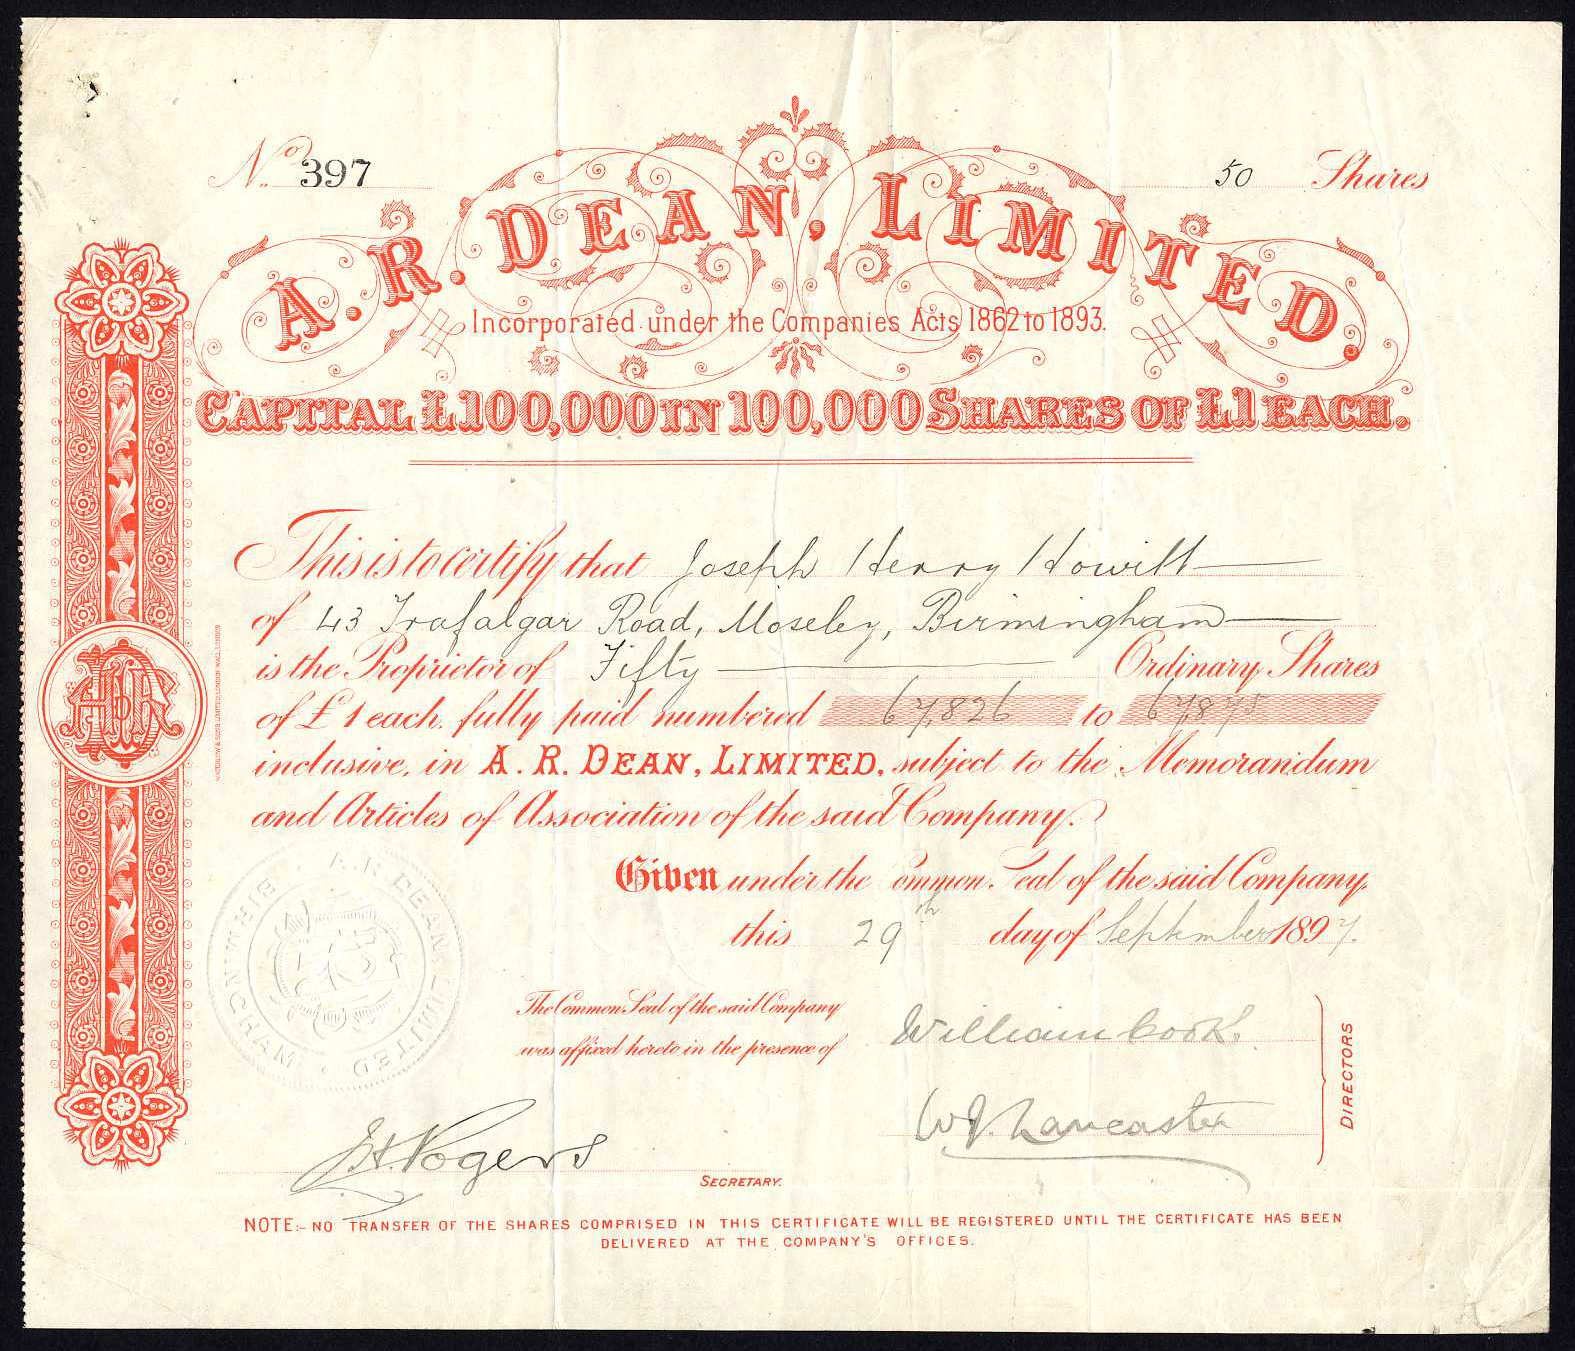 No. 397
50 Shares
A. R. DEAN, LIMITED.
Incorporated under the Companies Acts 1862 to 1893.
CAPITAL £100,000 IN 100,000 SHARES OF £1 EACH.
This is to certify that Joseph Henry Howitt
of 43 Trafalgar Road, Moseley, Birmingham
is the Proprietor of Fifty Ordinary Shares
of £1 each fully paid numbered 67,826 to 67,875
inclusive, in A. R. DEAN, LIMITED, subject to the Memorandum
and Articles of Association of the said Company.
Given under the Common Seal of the said Company,
this 29th day of September 1897.
A. R. DEAN LIMITED
BIRMINGHAM
The Common Seal of the said Company
was affixed hereto in the presence of
William Cook.
W J. Lancaster
DIRECTORS
Rogers
SECRETARY.
NOTE:- NO TRANSFER OF THE SHARES COMPRISED IN THIS CERTIFICATE WILL BE REGISTERED UNTIL THE CERTIFICATE HAS BEEN
DELIVERED AT THE COMPANY'S OFFICES.
WATERLOW & SONS LIMITED, LONDON WALL, LONDON